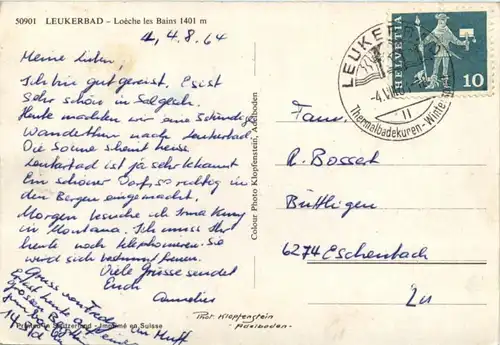 50901 LEUKERBAD – Loèche les Bains 1401 m
4.8.64
Meine Lieben,
Ich bin gut gereist. Es ist
sehr schön in Salgesch.
Heute machten wir eine 5stündige
Wanderthur nach Leukerbad.
Die Sonne scheint heiss.
Leukerbad ist ja sehr bekannt
Ein schöner Dorf, so richtig in
den Bergen eingemacht.
Morgen besuche ich Irma
in Montana. Ich muss Ihr
heute noch telephonieren. Sie
wird sich bestimmt freuen.
Viele Grüsse sendet
Euch
Cornelius
Gruss von
heute
Grossen
14
Printed in Switzerland - Imprimé en Suisse
Colour Photo Klopfenstein, Adelboden
LEUKERBAD
-4.VIII
11
Thermalbadekuren-Winter
HELVETIA
10
Fam.
R. Bossert
Büttligen
6274 Eschenbach
Lu
Phot. Klopfenstein
Adelboden